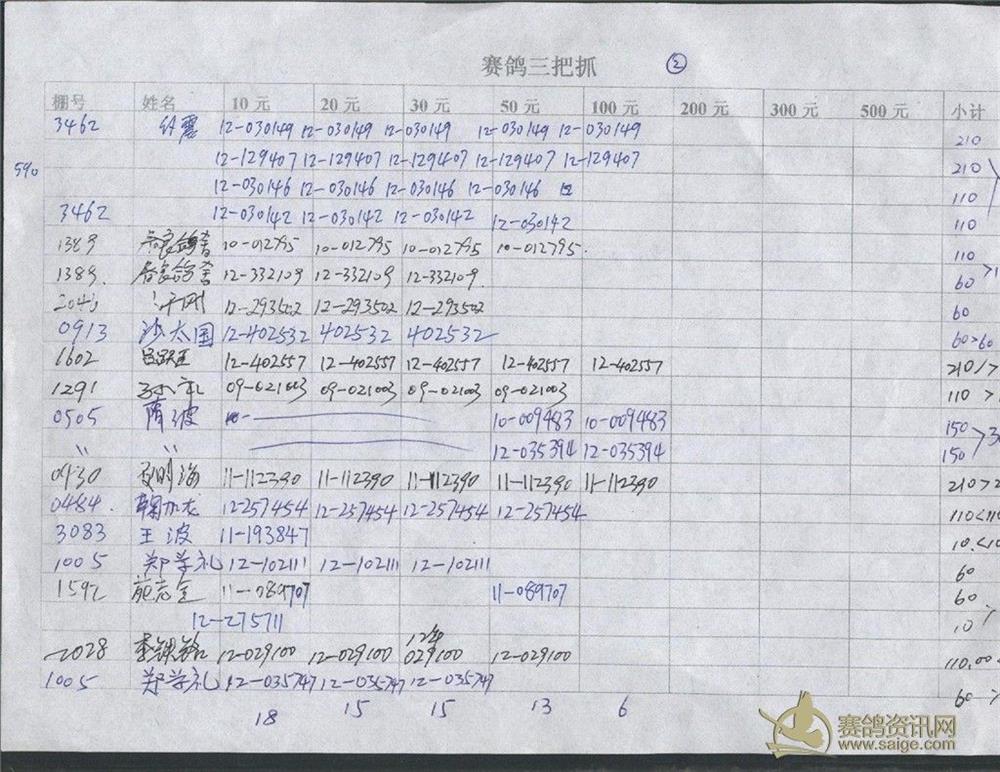 赛鸽三把抓 ②
棚号 姓名 10元 20元 30元 50元 100元 200元 300元 500元 小计
3462 12-030149 12-030149 12-030149 12-030149 12-030149 210
590 12-129407 12-129407 12-129407 12-129407 12-129407 210
12-030146 12-030146 12-030146 12-030146 110
3462 12-030142 12-030142 12-030142 12-030142 110
1389 10-012795 10-012795 10-012795 10-012795 110
1389 12-332109 12-332109 12-332109 60
12-293502 12-293502 12-293502 60
0913 沙太国 12-402532 402532 402532 60>60
1602 12-402557 12-402557 12-402557 12-402557 12-402557 210
1291 09-021003 09-021003 09-021003 09-021003 110
0505 隋波 10- 10-009483 10-009483 150
〃 〃 12-035394 12-035394 150
0930 11-112390 11-112390 11-112390 11-112390 11-112390 210
0484 鞠加龙 12-257454 12-257454 12-257454 12-257454 110
3083 王波 11-193847 10
1005 郑学礼 12-102111 12-102111 12-102111 60
1592 11-089707 11-089707 60
12-275711 10
2028 12-029100 12-029100 029100 12-029100 110.00
1005 郑学礼 12-035747 12-035747 12-035747 60
18 15 15 13 6
赛鸽资讯网
www.saige.com